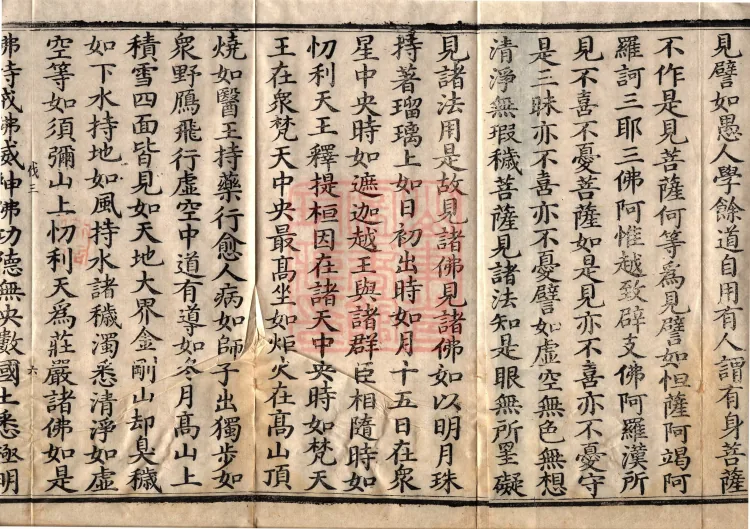 見譬如愚人學餘道自用有人謂有身菩薩
不作是見菩薩何等為見譬如怛薩阿竭阿
羅訶三耶三佛阿惟越致辟支佛阿羅漢所
見不喜不憂菩薩如是見亦不喜亦不憂守
是三昧亦不喜亦不憂譬如虛空無色無想
清淨無瑕穢菩薩見諸法知是眼無所罣礙
見諸法用是故見諸佛見諸佛如以明月珠
持著瑠璃上如日初出時如月十五日在衆
星中央時如遮迦越王與諸群臣相隨時如
忉利天王釋提桓因在諸天中央時如梵天
王在衆梵天中央最髙坐如炬火在髙山頂
燒如醫王持藥行愈人病如師子出獨步如
衆野鴈飛行虛空中道有導如冬月髙山上
積雪四面皆見如天地大界金剛山却臭穢
如下水持地如風持水諸穢濁悉清淨如虛
空等如須彌山上忉利天為莊嚴諸佛如是
伐三 六
佛持戒佛威神佛功德無央數國土悉極明